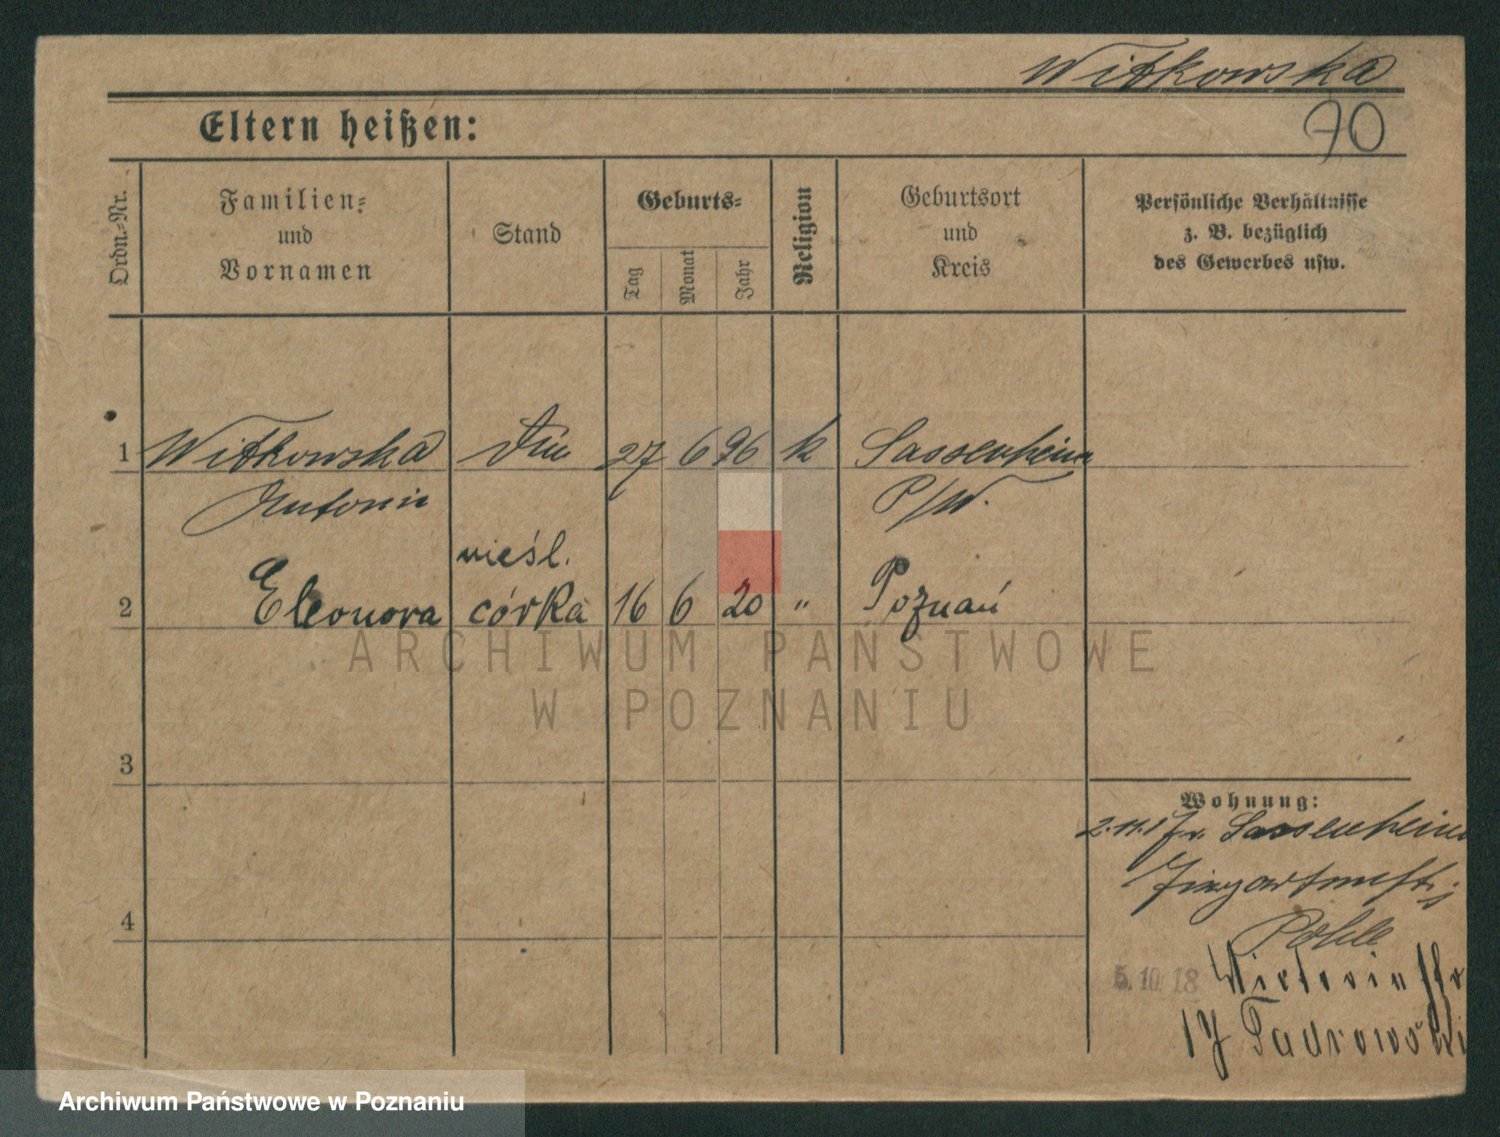 Witkowska
70
Eltern heißen:
Ordn.-Nr.
Familien-
und
Vornamen
Stand
Geburts-
Tag
Monat
Jahr
Religion
Geburtsort
und
Kreis
Persönliche Verhältnisse
z. B. bezüglich
des Gewerbes usw.
1 Witkowska 27 6 96 k Sassenheim
Antonie P/W.
nieśl.
2 Eleonora córka 16 6 20 " Poznań
3
Wohnung:
Sassenheim
4
Pohle
5. 10. 18
17
ARCHIWUM PAŃSTWOWE
W POZNANIU
Archiwum Państwowe w Poznaniu